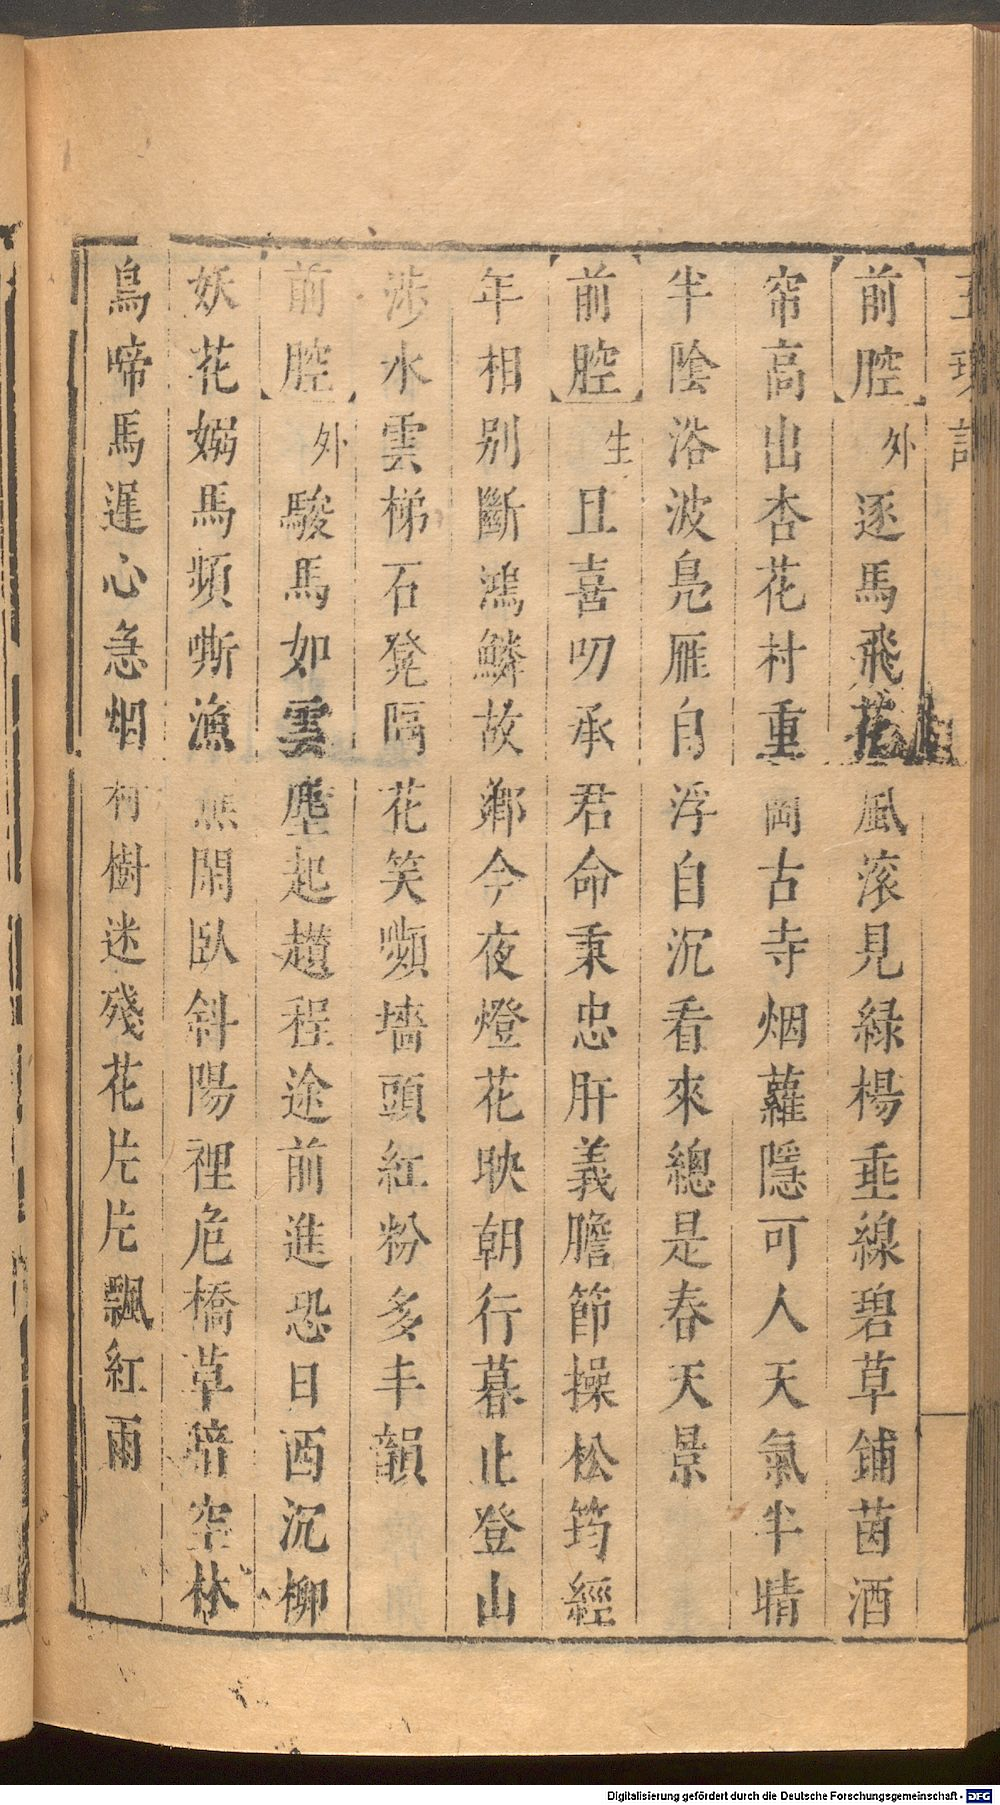 前腔外逐馬飛花風滚見緑楊垂線碧草鋪茵酒
帘高出杏花村重岡古寺烟蘿隱可人天氣半晴
半陰浴波鳧雁自浮自沉看來總是春天景
前腔生且喜叨承君命秉忠肝義膽節操松筠經
年相别斷鴻鱗故鄉今夜燈花映朝行暮止登山
涉水雲梯石凳隔花笑嚬墻頭紅粉多丰韻
前腔外駿馬如雲塵起趲程途前進恐日西沉柳
妖花嫋馬頻嘶漁樵閒臥斜陽裡危橋草暗空林
鳥啼馬遲心急烟村樹迷殘花片片飄紅雨
Digitalisierung gefördert durch die Deutsche Forschungsgemeinschaft - DFG